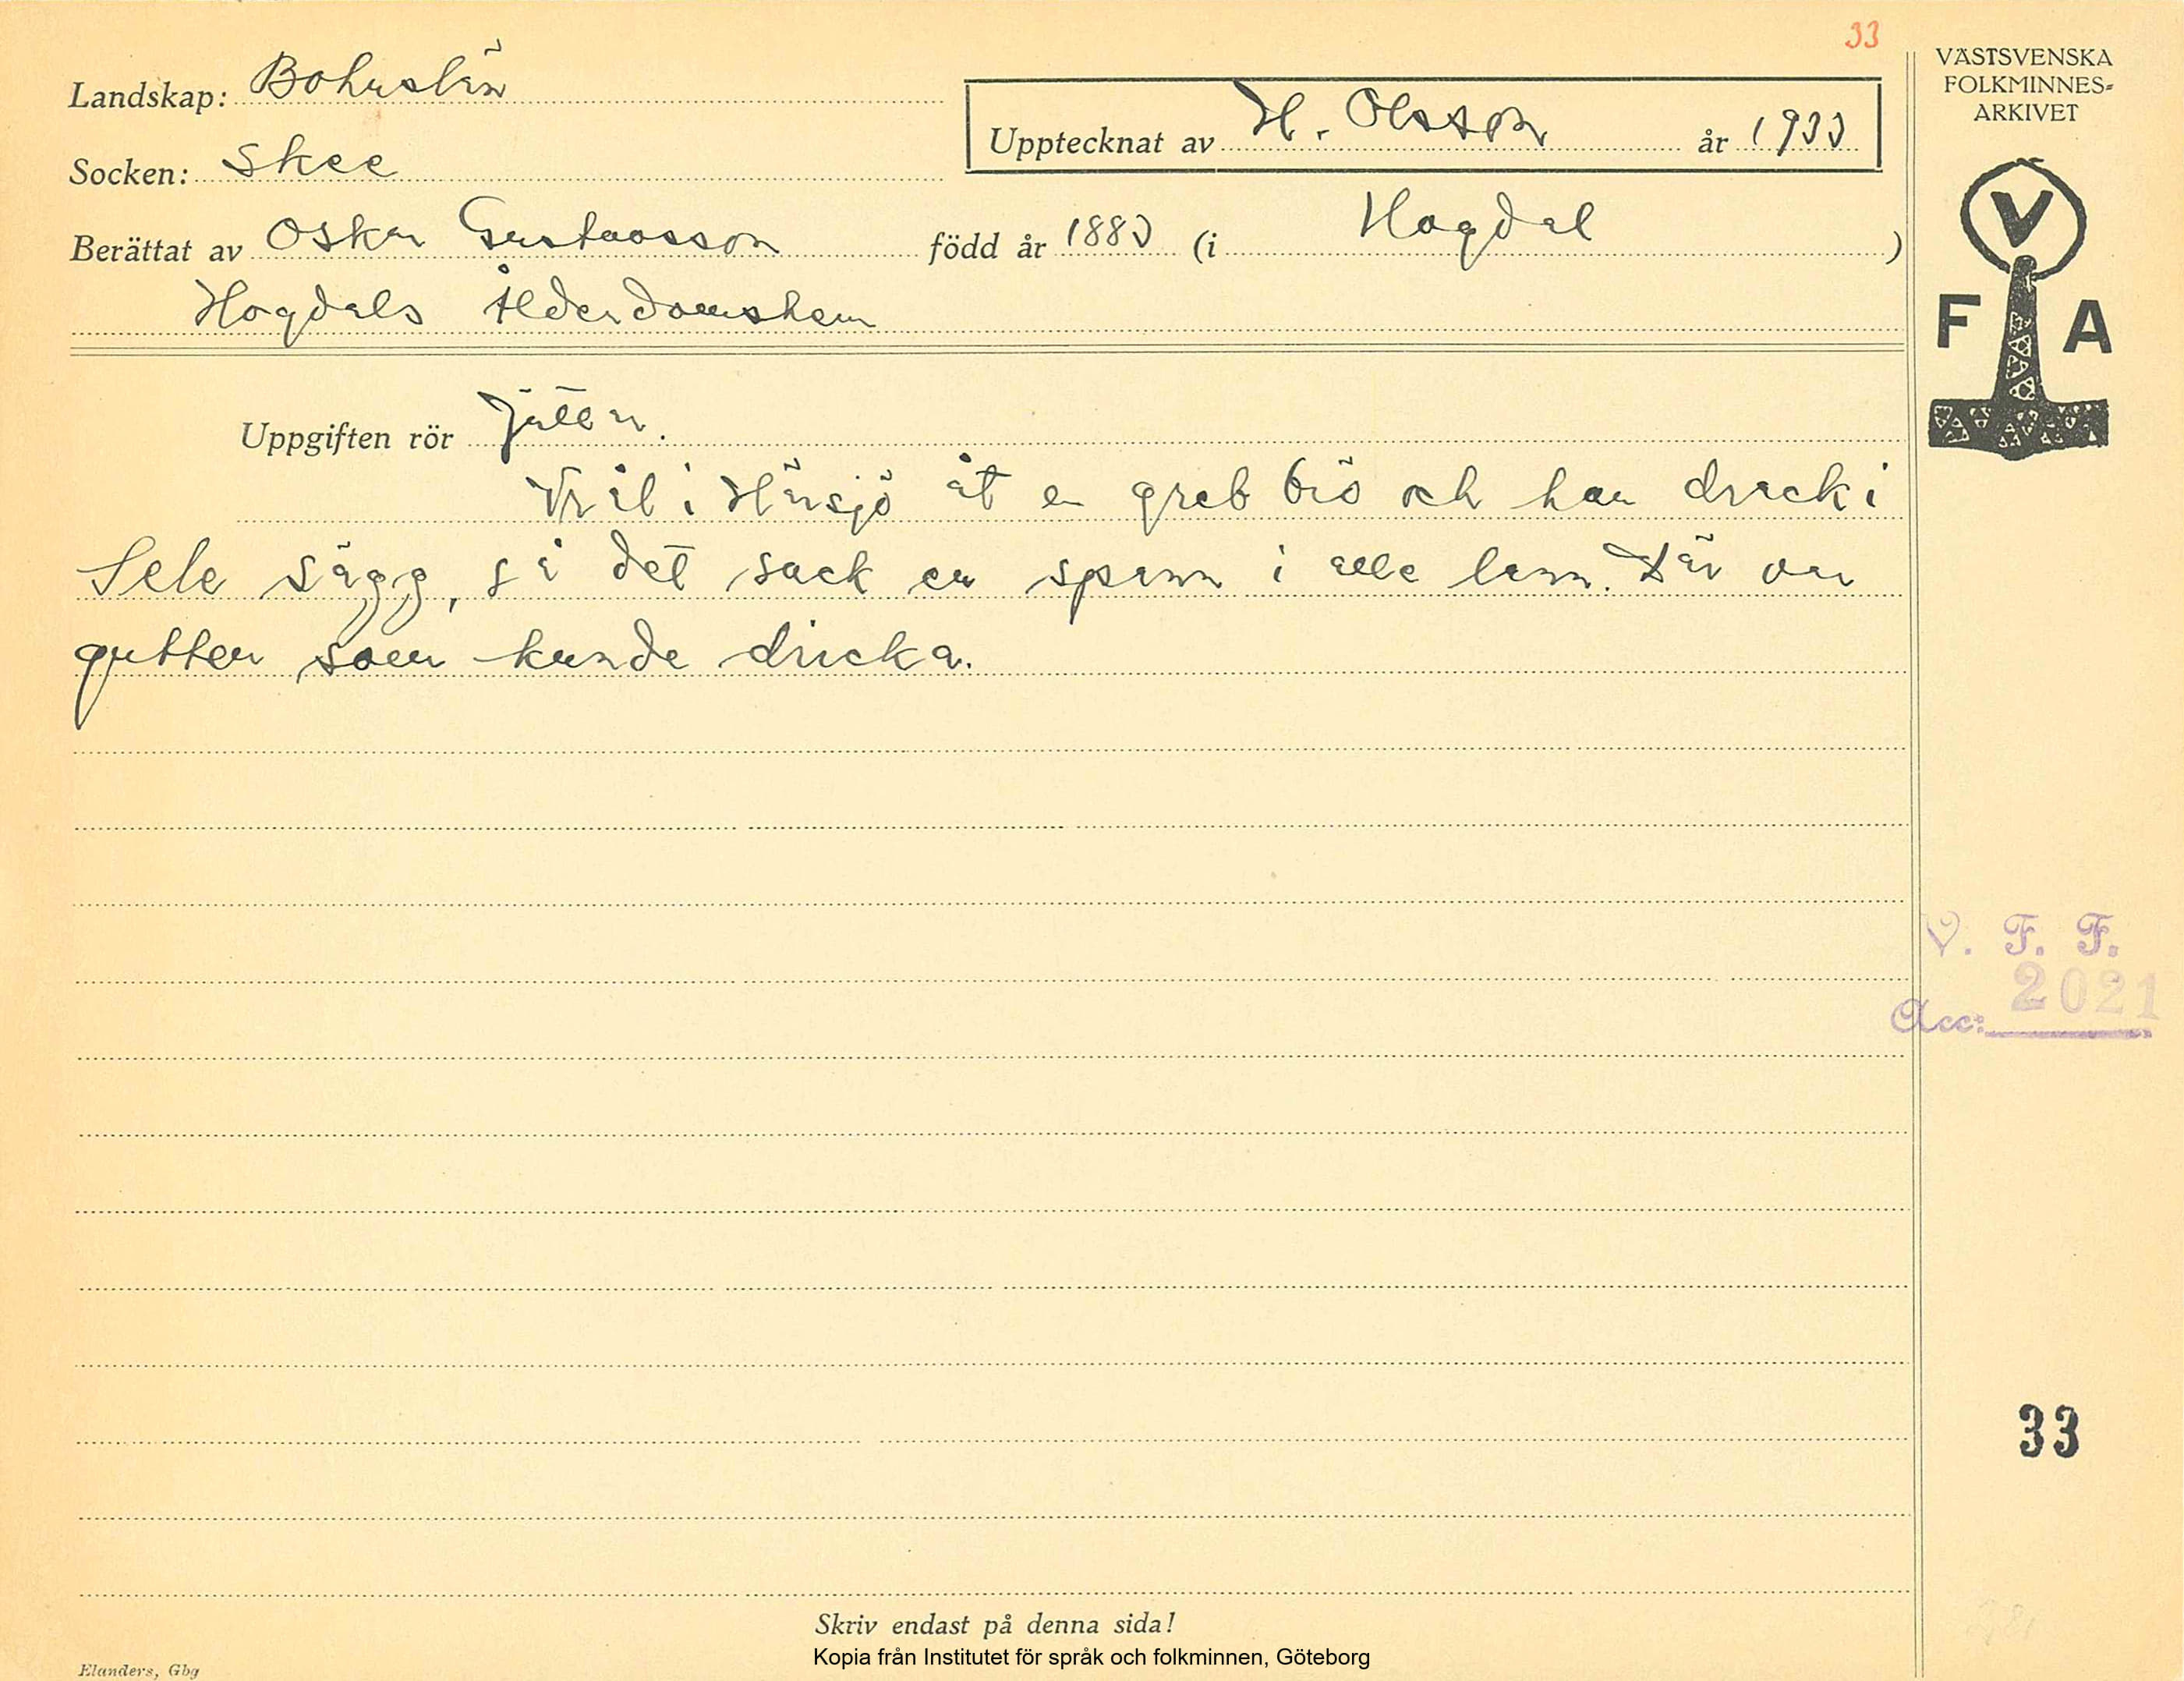 33
VÄSTSVENSKA
FOLKMINNES-
ARKIVET
Landskap: Bohuslän
Upptecknat av H. Olsson år 1933
Socken: Skee
Berättat av Oskar Gustavsson född år 1883 (i Hogdal)
Hogdals Ålderdomshem
V
F A
Uppgiften rör Jättar.
Vrål i Hårsjö åt en greb brö och han drack i
Sele sägg, så det sack en spann i alle lann. Där var
gutten som kunde dricka.
V. F. F.
Acc: 2021
33
Skriv endast på denna sida!
Kopia från Institutet för språk och folkminnen, Göteborg
Elanders, Gbg